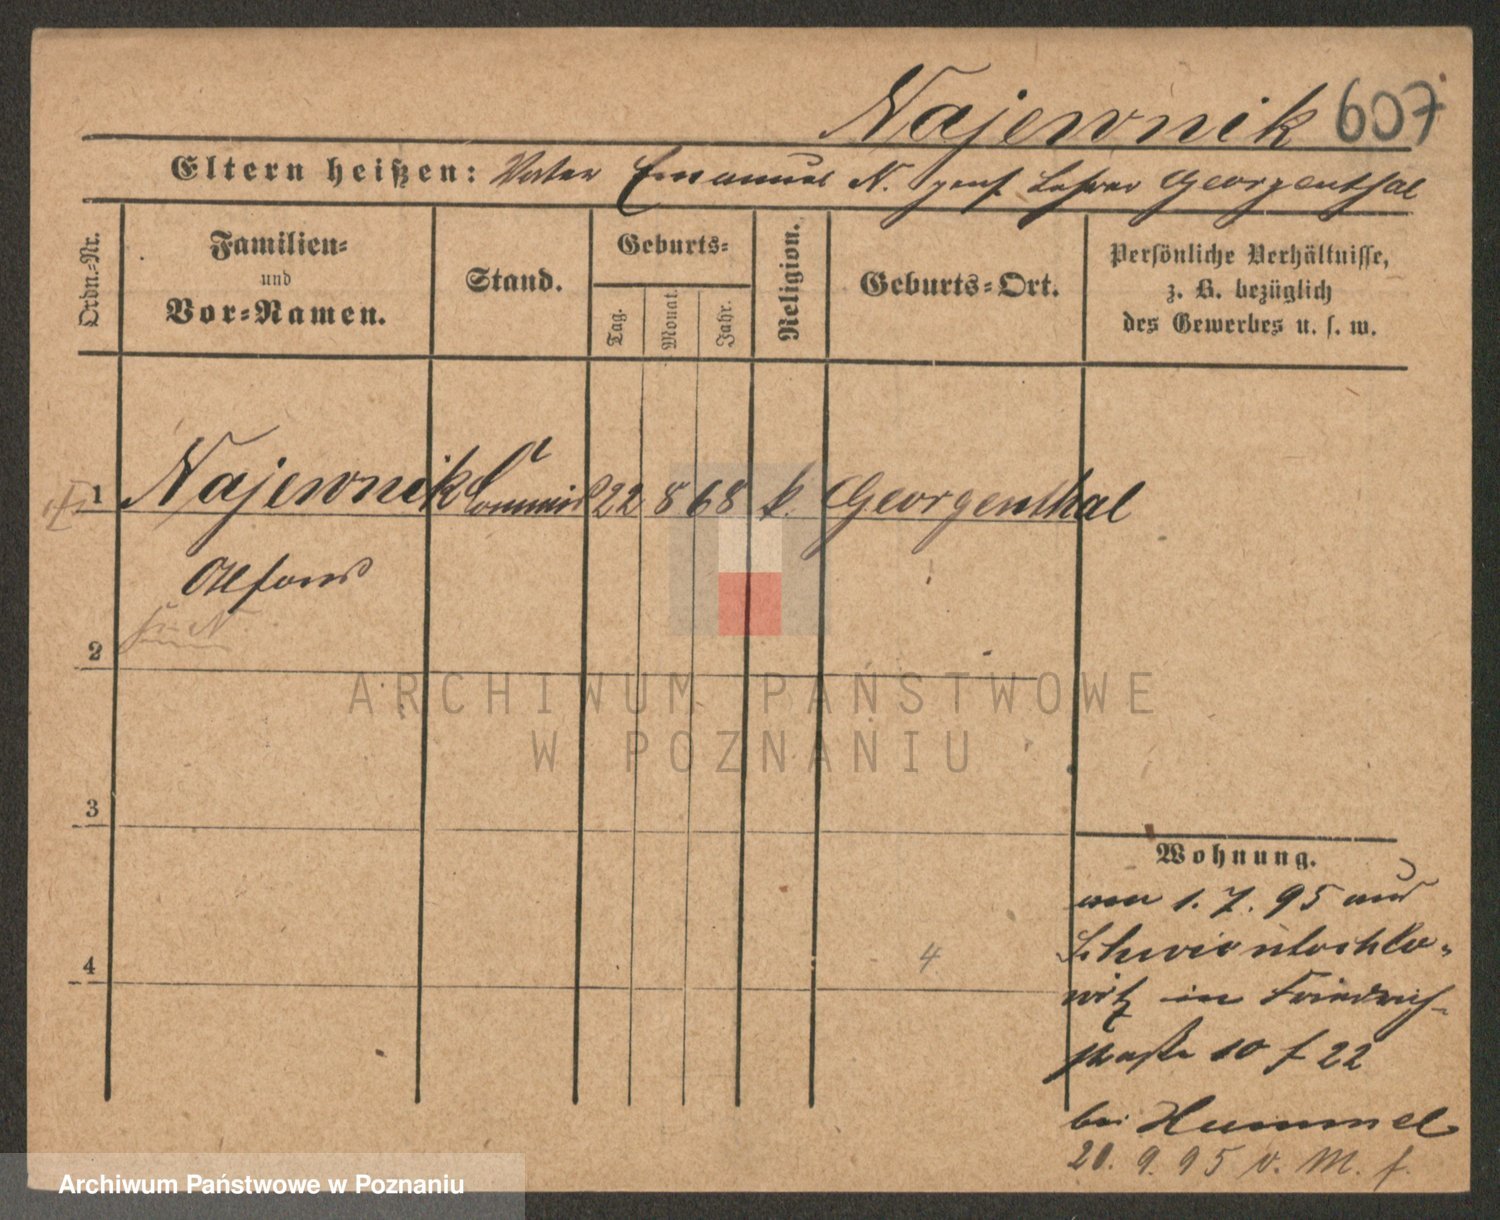 Najewnik 607
Eltern heißen: Vater Emanuel N. Lehrer Georgenthal
Ordn.-Nr.
Familien-
und
Vor-Namen.
Stand.
Geburts-
Tag.
Monat.
Jahr.
Religion.
Geburts-Ort.
Persönliche Verhältnisse,
z. B. bezüglich
des Gewerbes u. s. w.
1 Najewnik Commis 22 8 68 k. Georgenthal
Alfons
2
3
4
4
Wohnung.
1. 7. 95 aus
Schwientochlo-
witz in Friedrich-
straße 10 f 22
bei Hummel
20. 9. 95 v. M. f.
ARCHIWUM PAŃSTWOWE
W POZNANIU
Archiwum Państwowe w Poznaniu